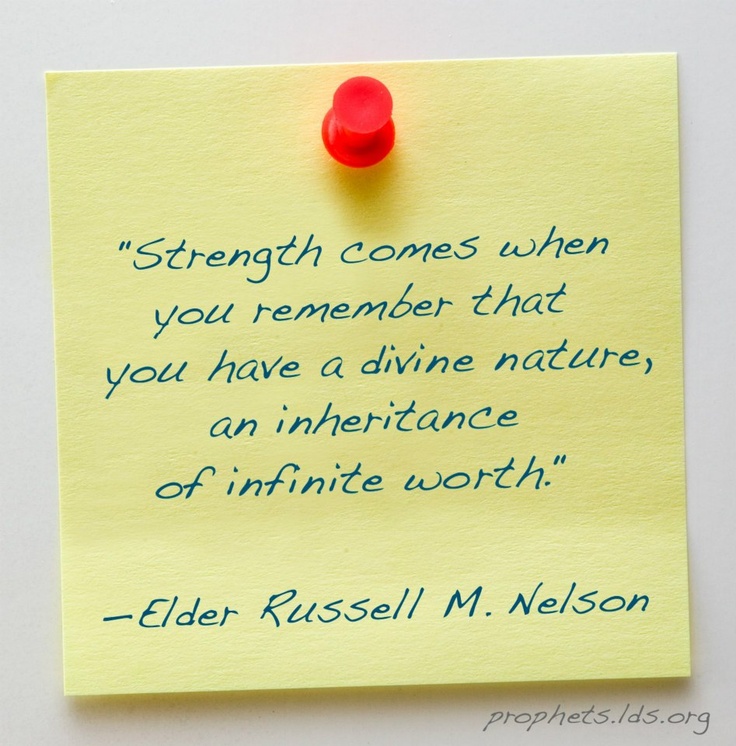 "Strength comes when
you remember that
you have a divine nature,
an inheritance
of infinite worth."
—Elder Russell M. Nelson
prophets.lds.org